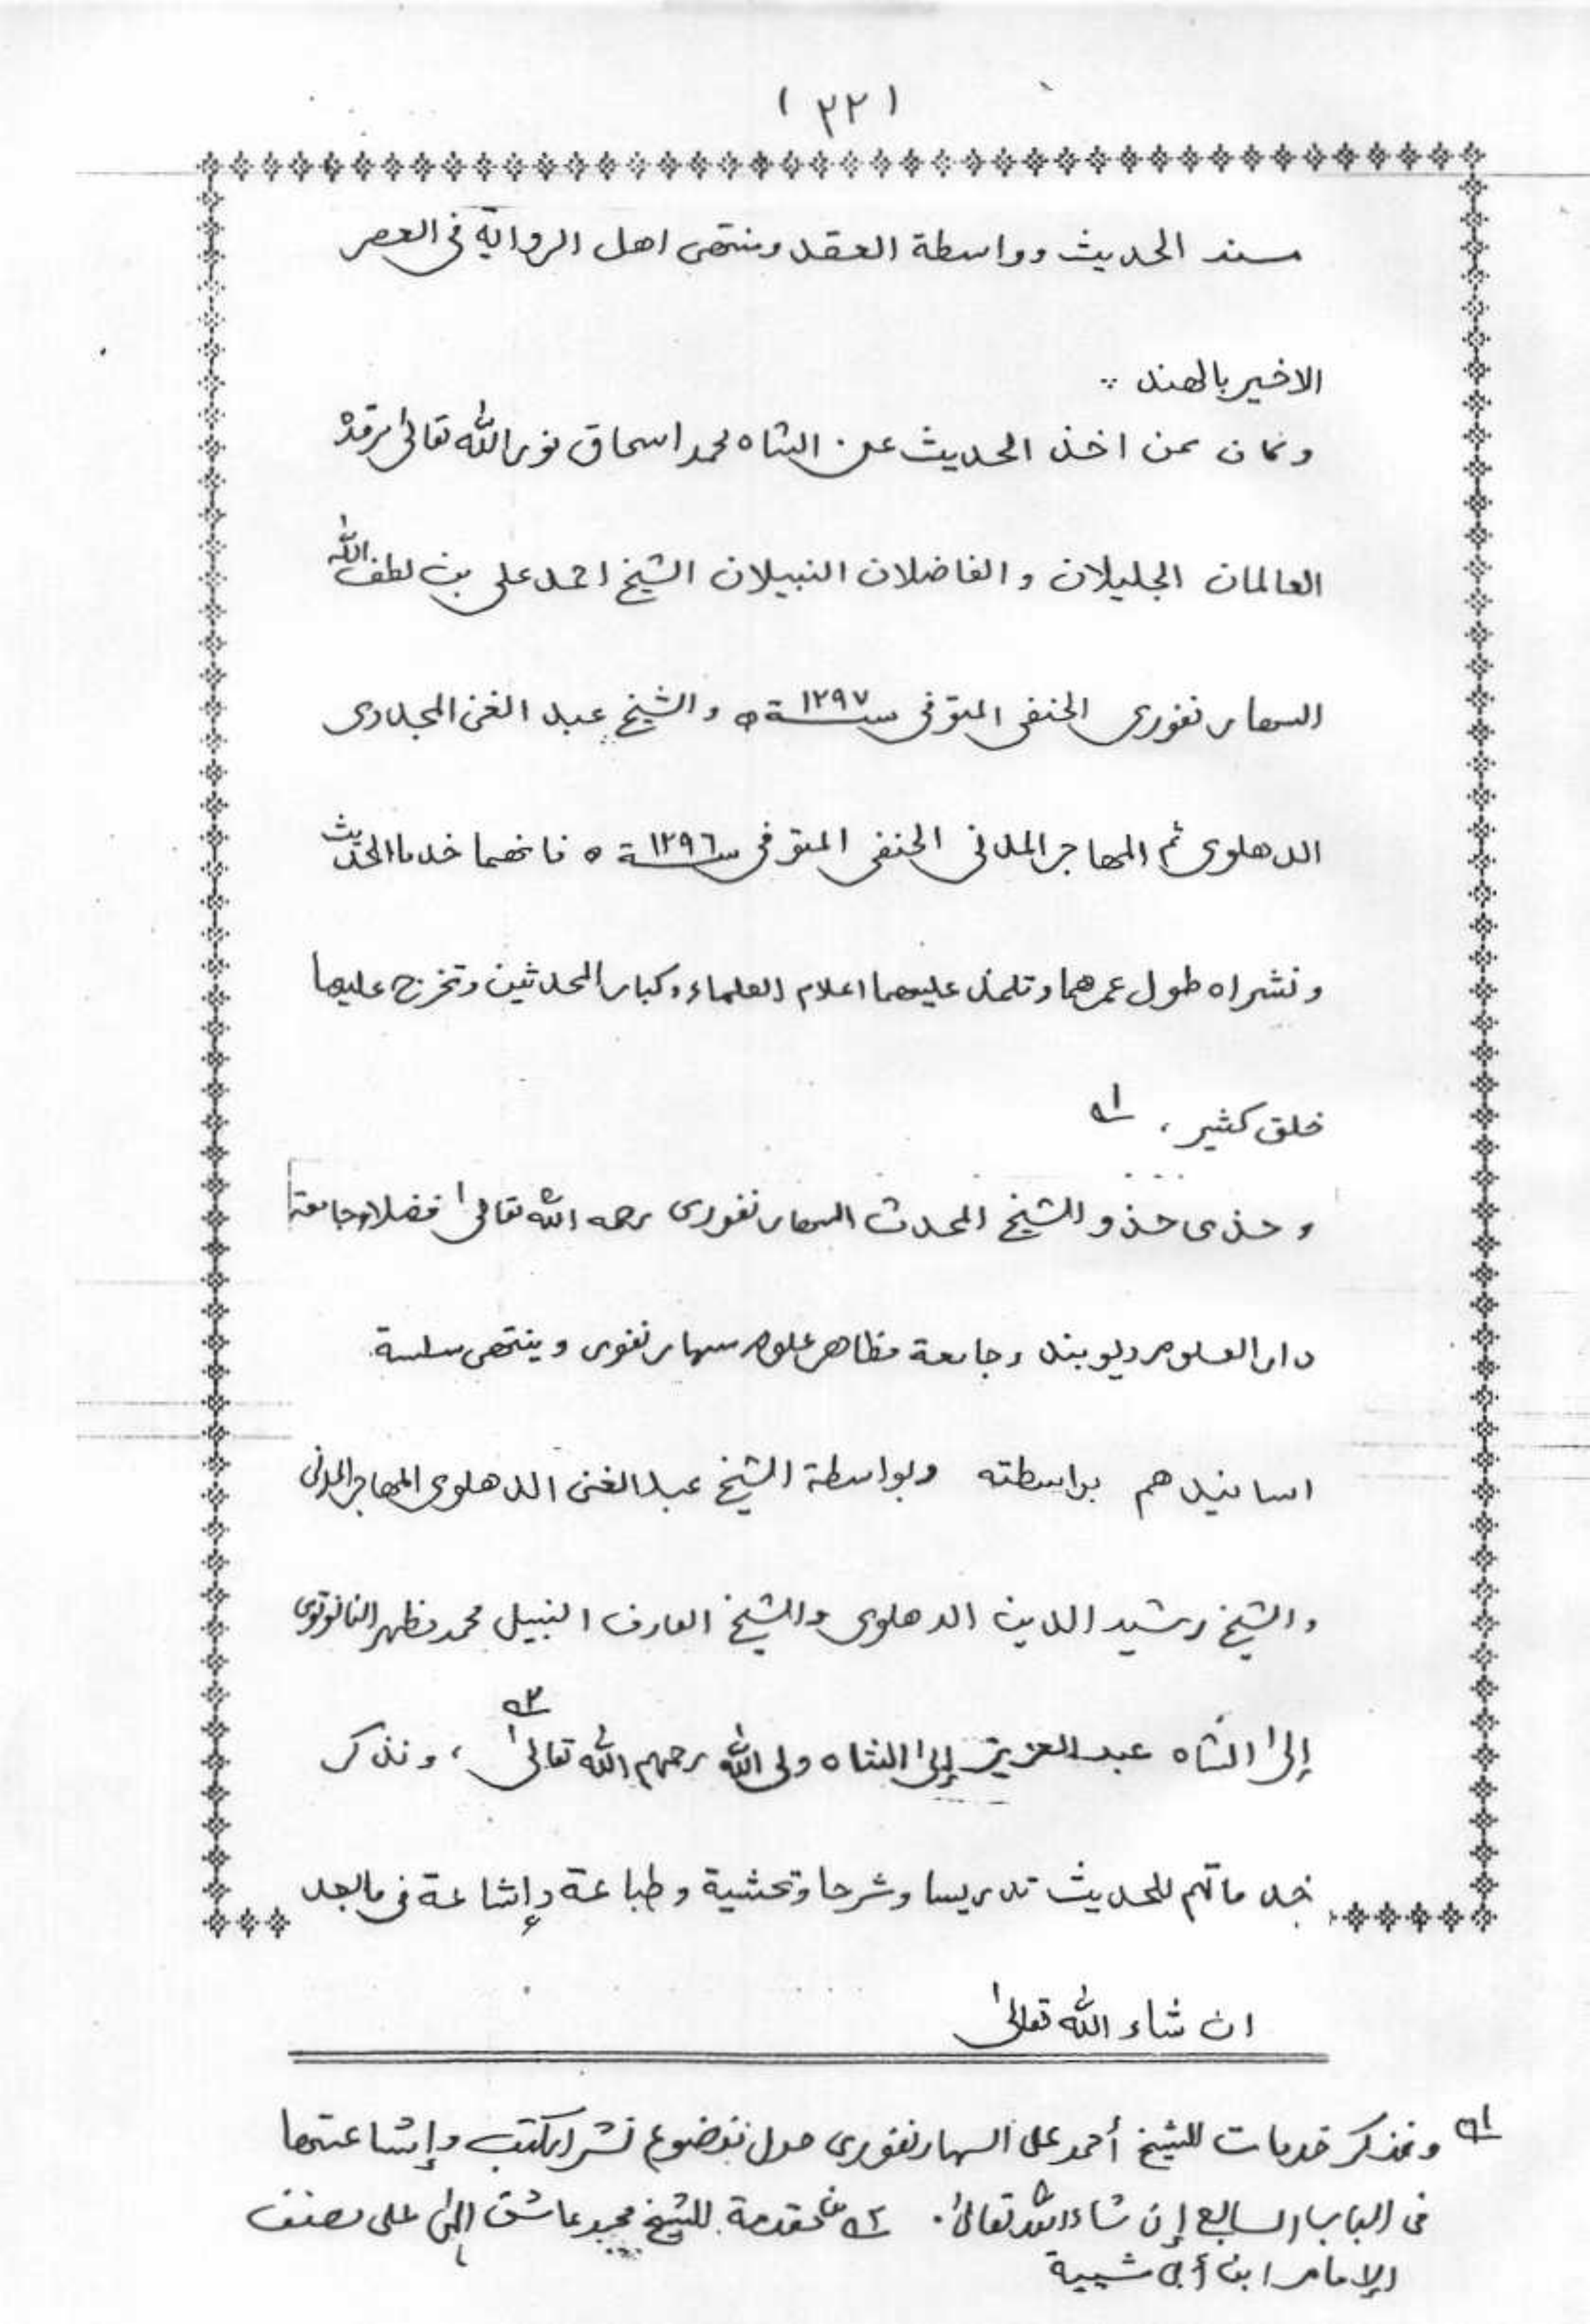 (٢٢)
مسند الحديث وواسطة العقد ومنتهى اهل الرواية فى العصر
الاخير بالهند ::
وكان ممن اخذ الحديث عن الشاه محمد اسحاق نور الله تعالىٰ مرقده
العالمان الجليلان والفاضلان النبيلان الشيخ احمد على بن لطف الله
السهارنفورى الحنفى المتوفى سنة ١٢٩٧ه والشيخ عبد الغنى المجددى
الدهلوى ثم المهاجر المدنى الحنفى المتوفى سنة ١٢٩٦ه فانهما خدما الحديث
ونشراه طول عمرهما وتلمذ عليهما اعلام العلماء وكبار المحدثين وتخرج عليهما
خلق كثير، ١ه
وحذى حذو الشيخ المحدث السهارنفورى رحمه الله تعالىٰ فضلاء جامعة
دار العلوم ديوبند وجامعة مظاهر علوم سهارنفور وينتهى سلسة
اسانيدهم بواسطته وبواسطة الشيخ عبد الغنى الدهلوى المهاجر المدنى
والشيخ رشيد الدين الدهلوى والشيخ العارف النبيل محمد مظهر النانوتوى
إلىٰ الشاه عبد العزيز إلىٰ الشاه ولى الله رحمهم الله تعالىٰ ٢ه، ونذكر
خدماتهم للحديث تدريسا وشرحا وتحشية وطباعة وإشاعة فى مابعد
ان شاء الله تعالىٰ
١ه ونذكر خدمات الشيخ أحمد على السهارنفورى حول موضوع نشر الكتب وإشاعتها
فى الباب السابع إن شاء الله تعالىٰ. ٢ه مقدمة الشيخ محمد عاشق إلٰهى على مصنف
الإمام ابن أبى شيبة